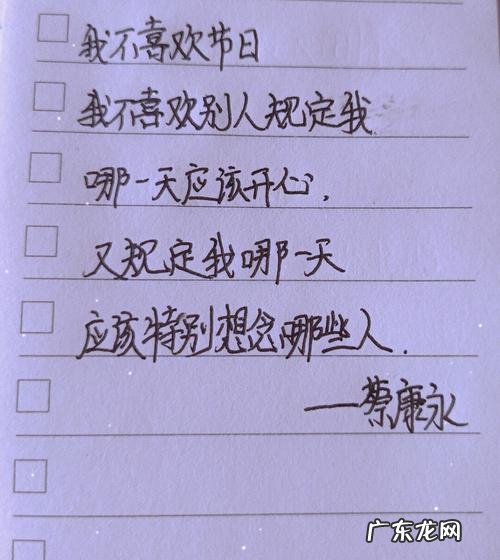 我不喜欢节日
我不喜欢别人规定我
哪一天应该开心，
又规定我哪一天
应该特别想念哪些人．
——蔡康永
广东龙网